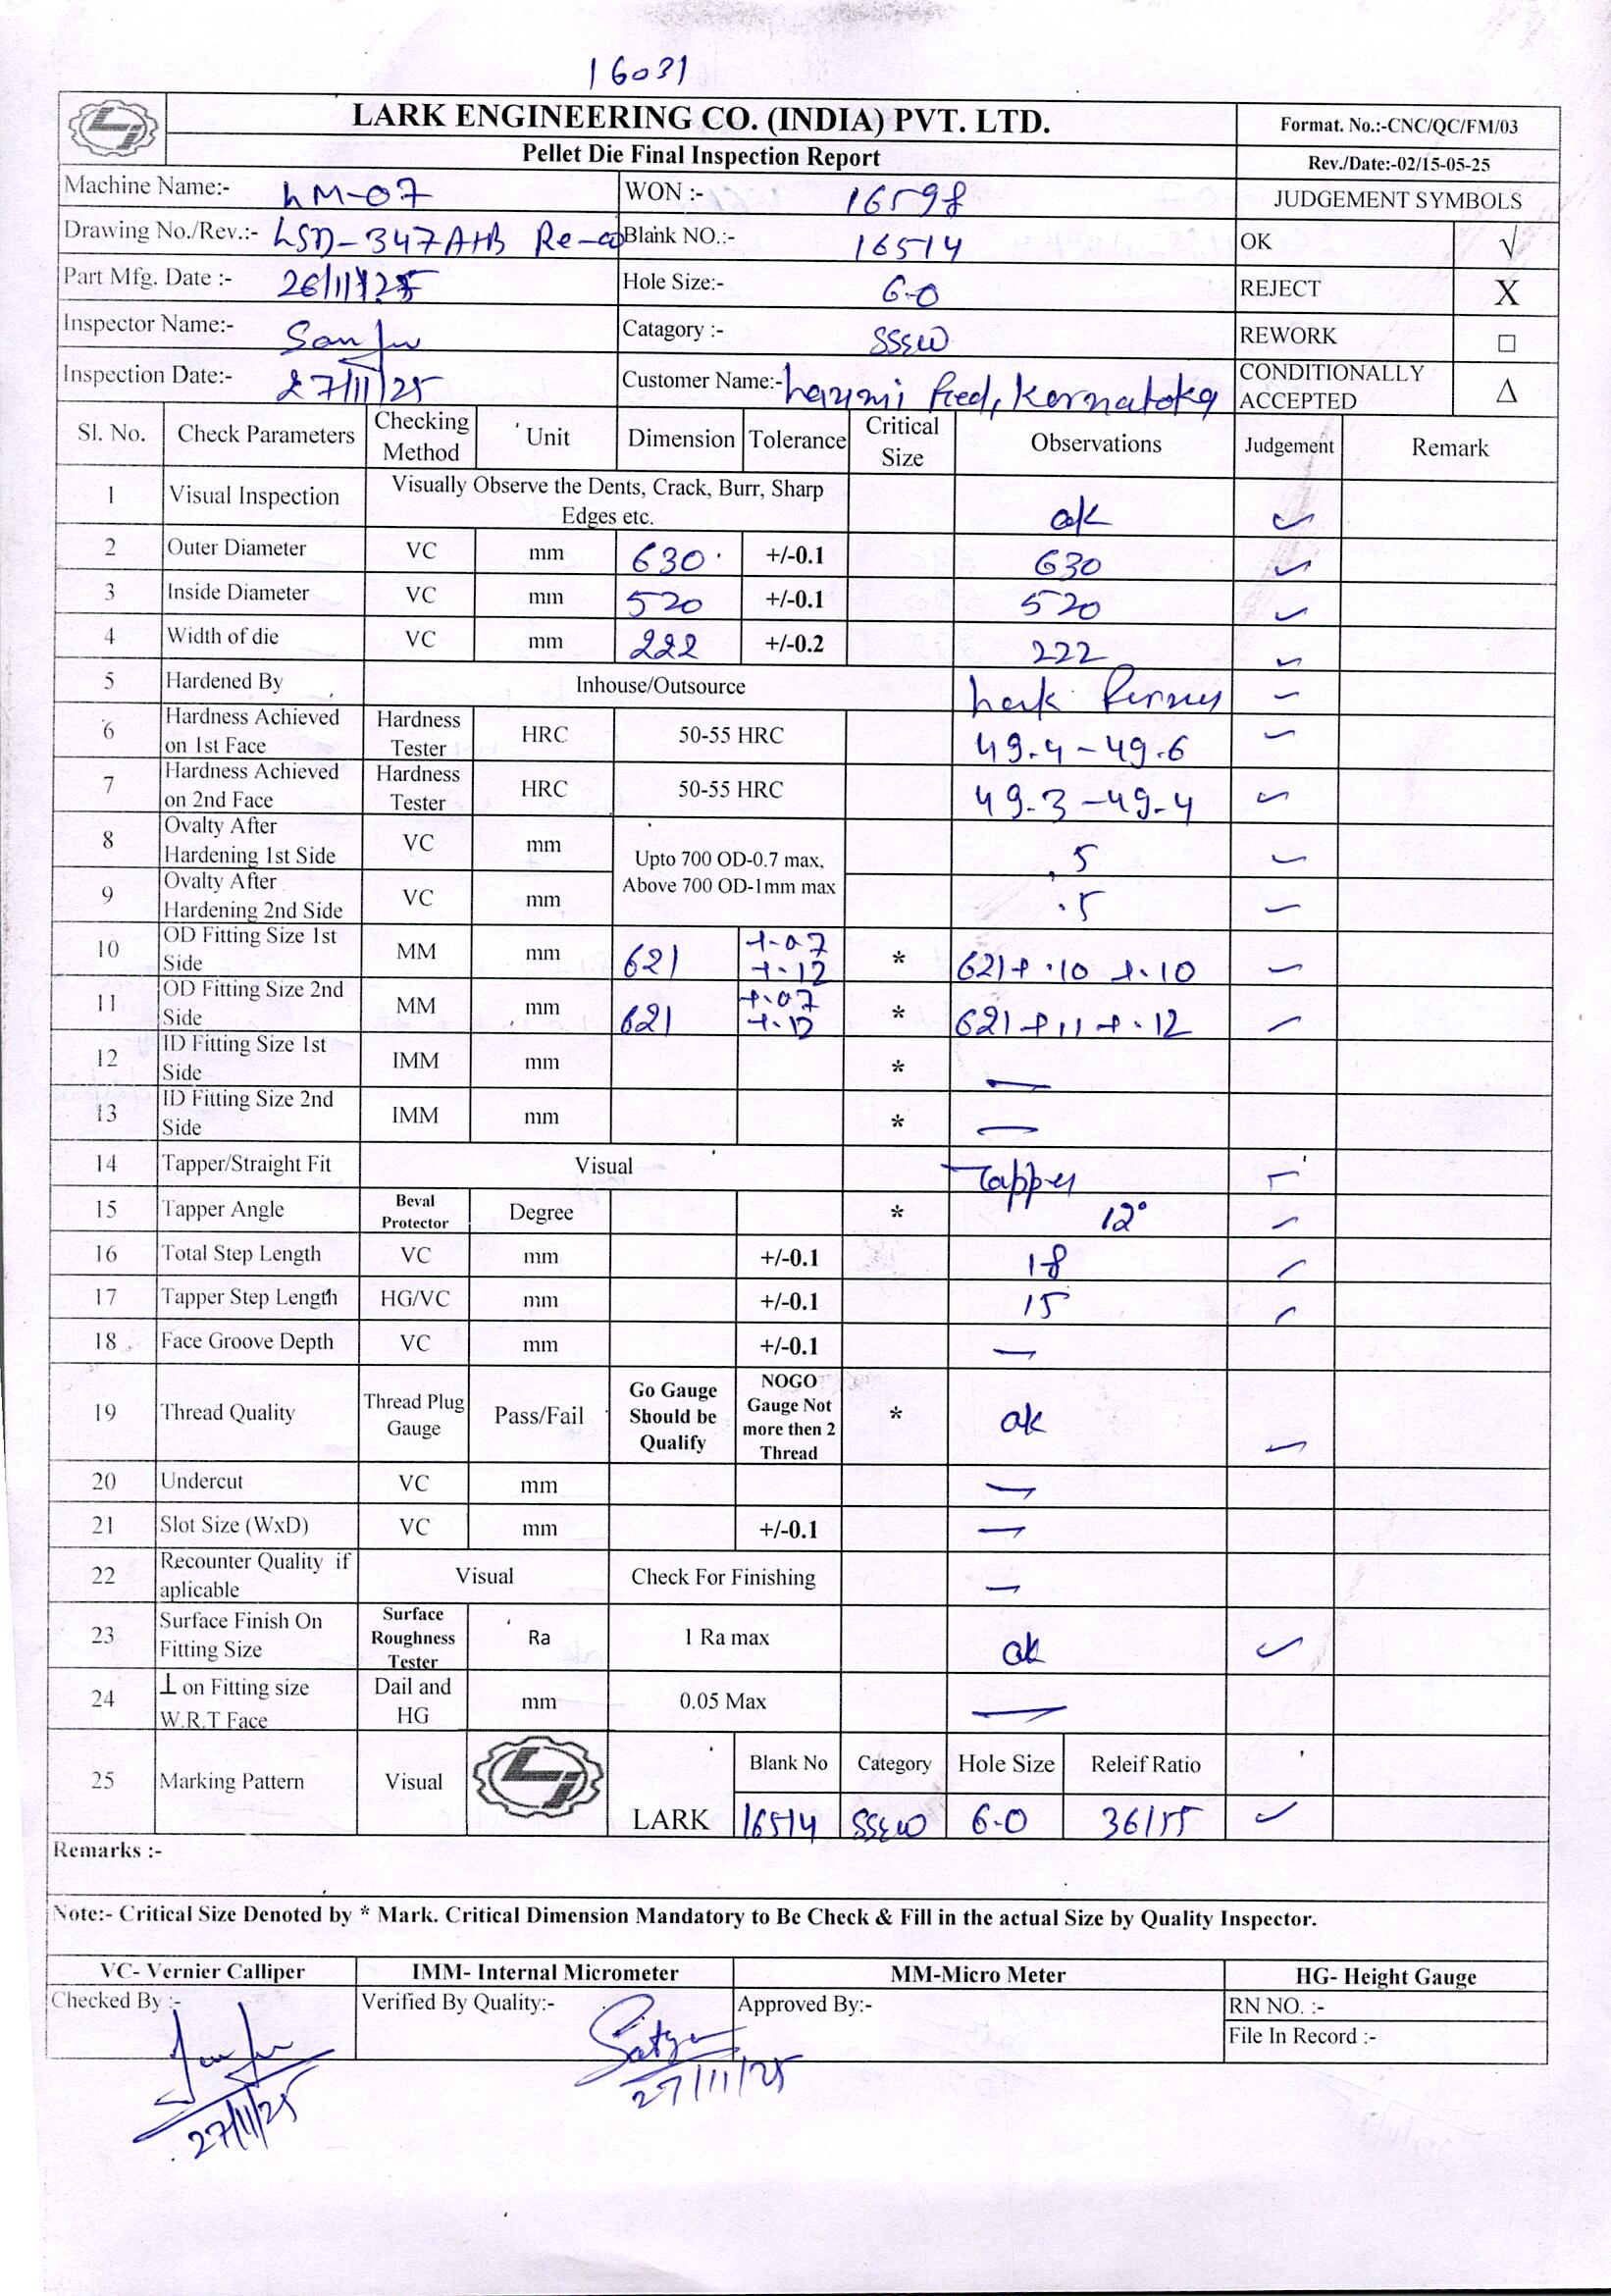 16031
LARK ENGINEERING CO. (INDIA) PVT. LTD.
Format. No.:-CNC/QC/FM/03
Pellet Die Final Inspection Report
Rev./Date:-02/15-05-25
Machine Name:- LM-07 WON :- 16598 JUDGEMENT SYMBOLS
Drawing No./Rev.:- LSD-347A+B Re-00 Blank NO.:- 16514 OK √
Part Mfg. Date :- 26/11/25 Hole Size:- 6.0 REJECT X
Inspector Name:- Sanju Catagory :- SSEW REWORK □
Inspection Date:- 27/11/25 Customer Name:- Laxmi Feed, Karnataka CONDITIONALLY ACCEPTED Δ
Sl. No. Check Parameters Checking Method Unit Dimension Tolerance Critical Size Observations Judgement Remark
1 Visual Inspection Visually Observe the Dents, Crack, Burr, Sharp Edges etc. ok ✓
2 Outer Diameter VC mm 630 +/-0.1 630 ✓
3 Inside Diameter VC mm 520 +/-0.1 520 ✓
4 Width of die VC mm 222 +/-0.2 222 ✓
5 Hardened By Inhouse/Outsource Lark ✓
6 Hardness Achieved on 1st Face Hardness Tester HRC 50-55 HRC 49.4-49.6 ✓
7 Hardness Achieved on 2nd Face Hardness Tester HRC 50-55 HRC 49.3-49.4 ✓
8 Ovalty After Hardening 1st Side VC mm Upto 700 OD-0.7 max, Above 700 OD-1mm max .5 ✓
9 Ovalty After Hardening 2nd Side VC mm .5 ✓
10 OD Fitting Size 1st Side MM mm 621 +.07 +.12 * 621+.10 +.10 ✓
11 OD Fitting Size 2nd Side MM mm 621 +.07 +.12 * 621+.11+.12 ✓
12 ID Fitting Size 1st Side IMM mm * —
13 ID Fitting Size 2nd Side IMM mm * —
14 Tapper/Straight Fit Visual Tapper ✓
15 Tapper Angle Beval Protector Degree * 12° ✓
16 Total Step Length VC mm +/-0.1 18 ✓
17 Tapper Step Length HG/VC mm +/-0.1 15 ✓
18 Face Groove Depth VC mm +/-0.1 —
19 Thread Quality Thread Plug Gauge Pass/Fail Go Gauge Should be Qualify NOGO Gauge Not more then 2 Thread * ok ✓
20 Undercut VC mm —
21 Slot Size (WxD) VC mm +/-0.1 —
22 Recounter Quality if aplicable Visual Check For Finishing —
23 Surface Finish On Fitting Size Surface Roughness Tester Ra 1 Ra max ok ✓
24 ⊥ on Fitting size W.R.T Face Dail and HG mm 0.05 Max —
25 Marking Pattern Visual LARK Blank No Category Hole Size Releif Ratio
16514 SSEW 6.0 36/55 ✓
Remarks :-
Note:- Critical Size Denoted by * Mark. Critical Dimension Mandatory to Be Check & Fill in the actual Size by Quality Inspector.
VC- Vernier Calliper IMM- Internal Micrometer MM-Micro Meter HG- Height Gauge
Checked By :- Sanju Verified By Quality:- Approved By:- RN NO. :-
File In Record :-
27/11/25 27/11/25